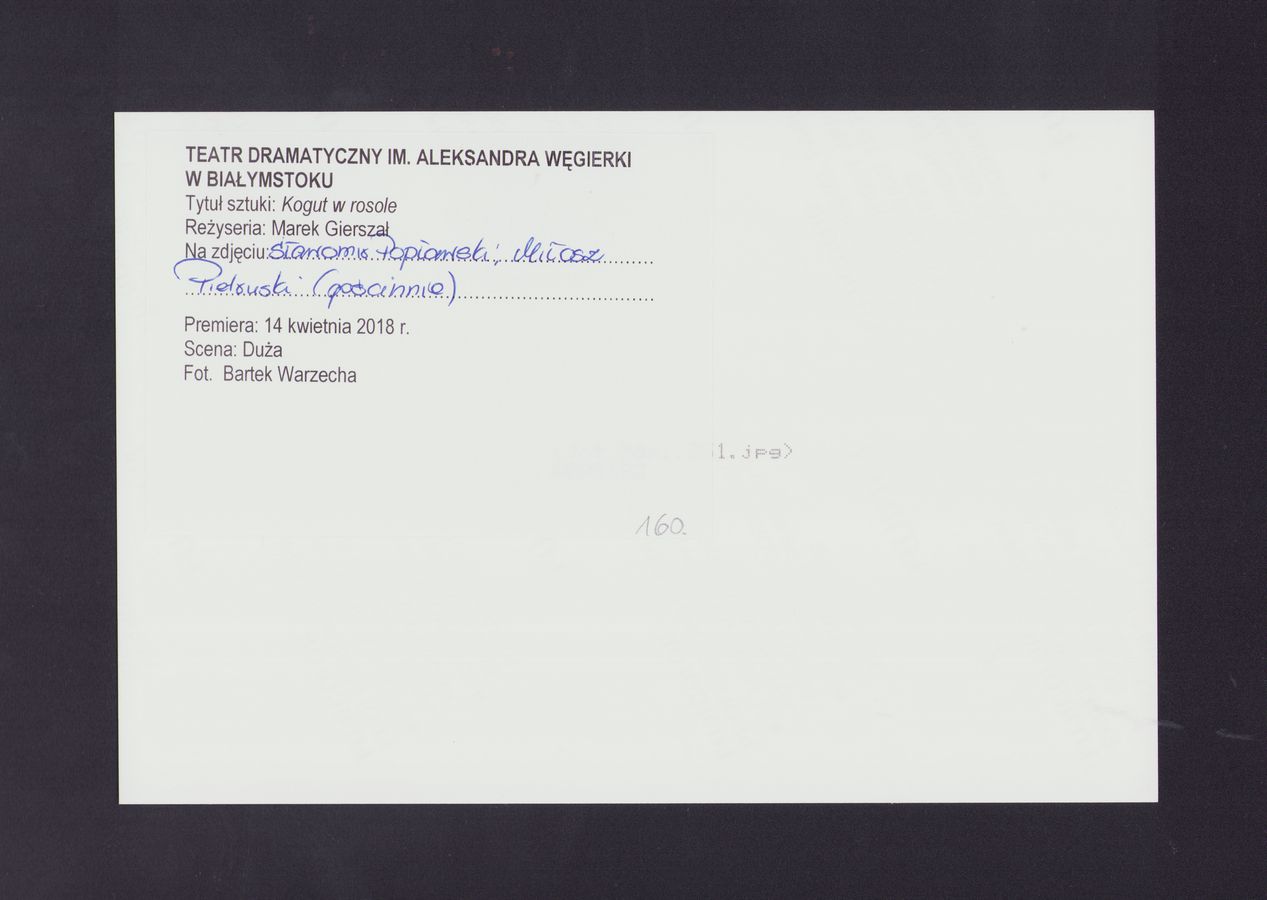 TEATR DRAMATYCZNY IM. ALEKSANDRA WĘGIERKI
W BIAŁYMSTOKU
Tytuł sztuki: Kogut w rosole
Reżyseria: Marek Gierszał
Na zdjęciu: Sławomir Popławski; Miłosz
Pietruski (gościnnie)
Premiera: 14 kwietnia 2018 r.
Scena: Duża
Fot. Bartek Warzecha
1.jpg>
160.